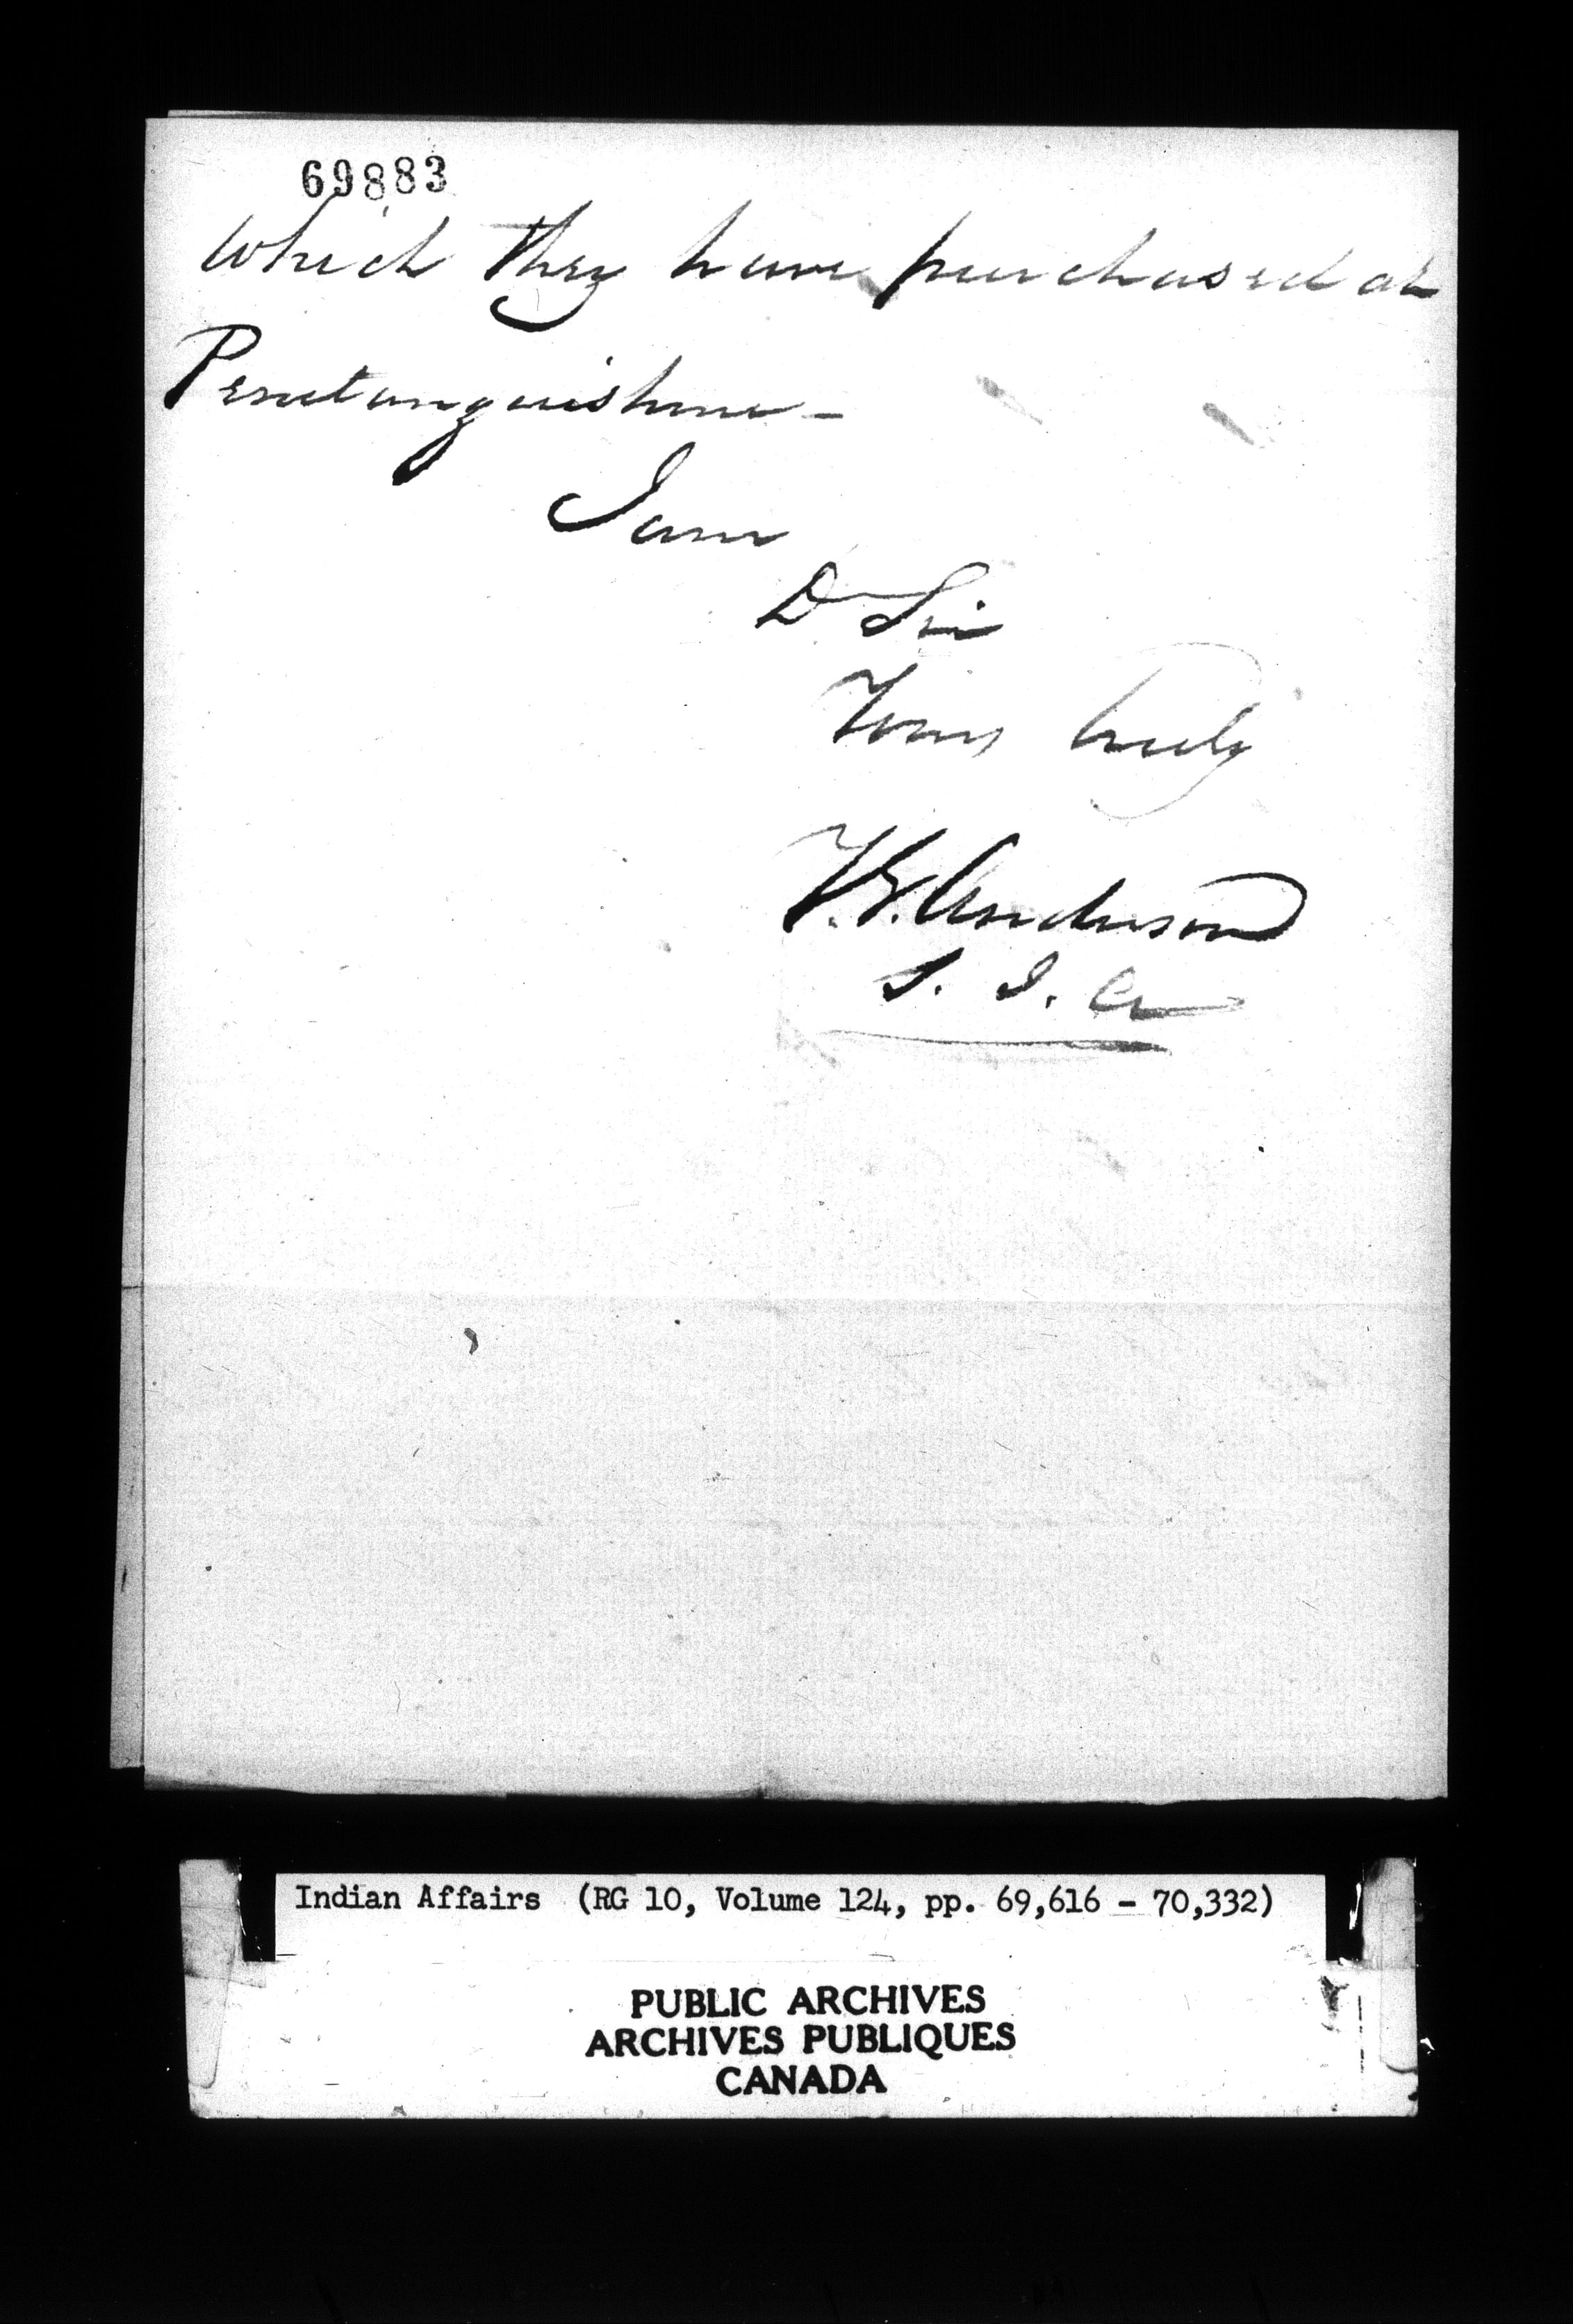 69883
which they have purchased at
Penetanguishine -
I am
D Sir
Yours truly
T. G. Anderson
S. I. A
Indian Affairs (RG 10, Volume 124, pp. 69,616 - 70,332)
PUBLIC ARCHIVES
ARCHIVES PUBLIQUES
CANADA